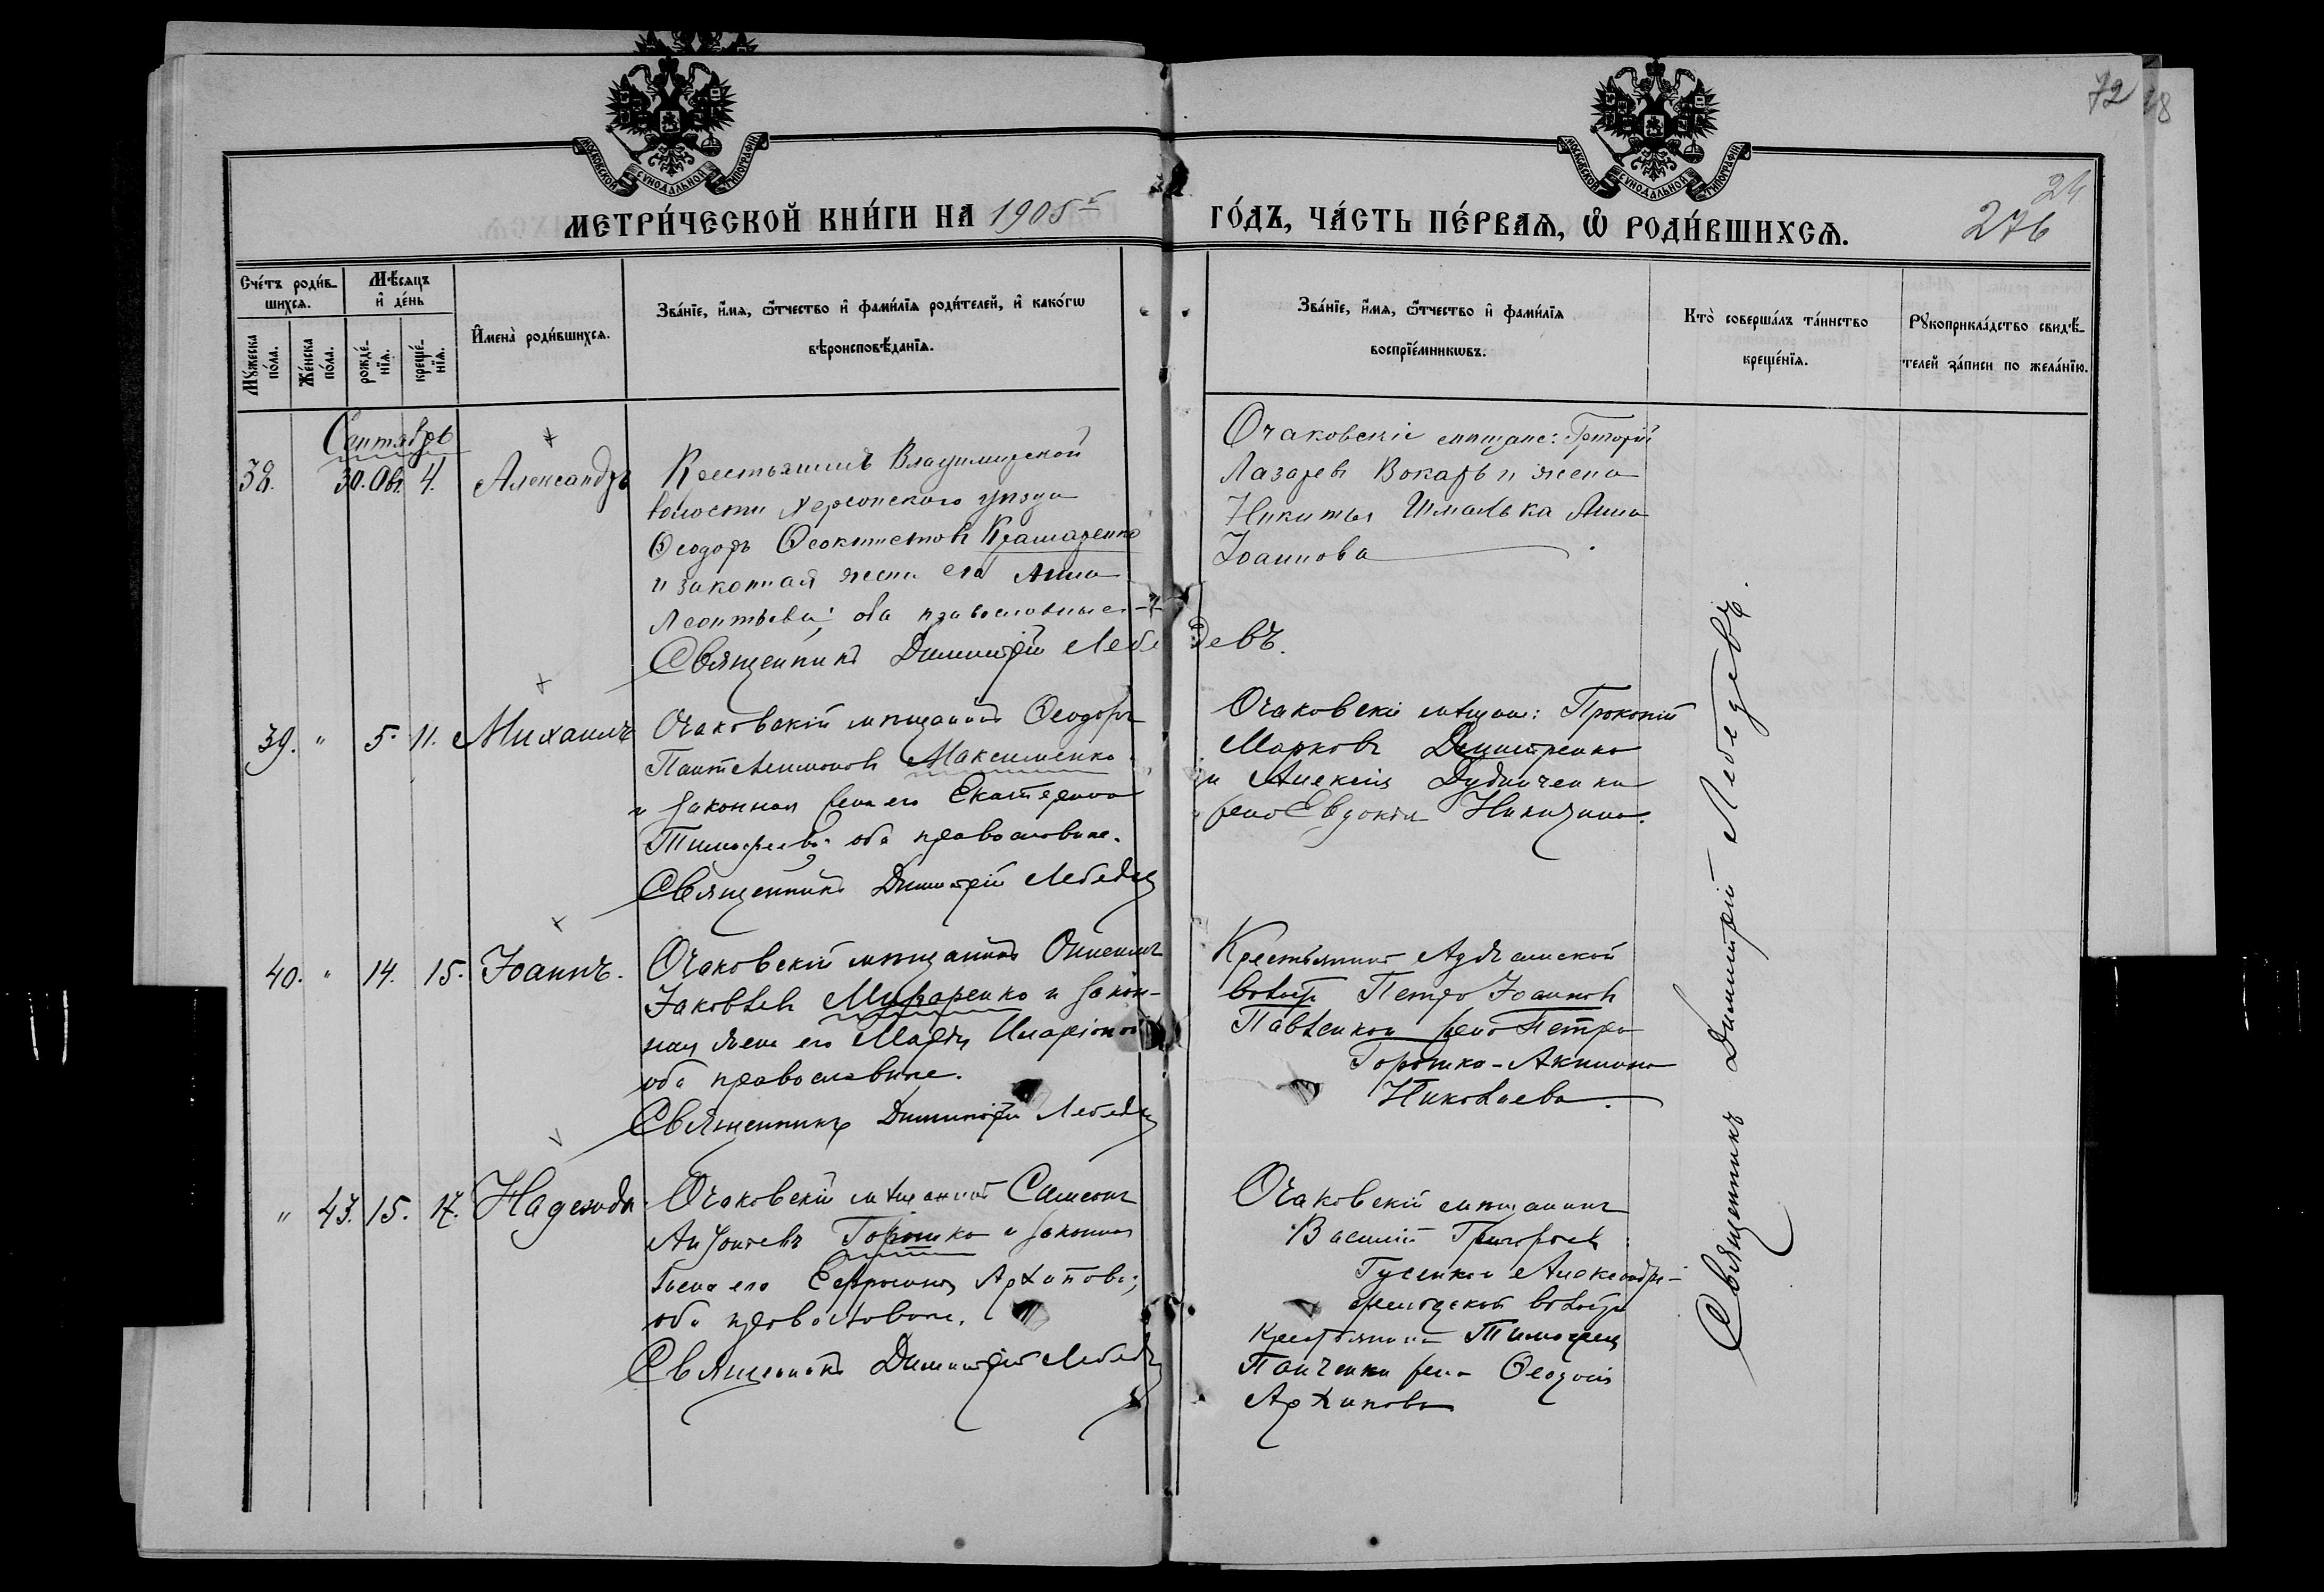 72
МОСКОВСКОЙ СУНОДАЛЬНОЙ ТИПОГРАФІИ
МОСКОВСКОЙ СУНОДАЛЬНОЙ ТИПОГРАФІИ
24
276
МЕТРИ́ЧЕСКОЙ КНИ́ГИ НА 1905 ГО́ДЪ, ЧА́СТЬ ПЕ́РВАѦ, Ѡ҆ РОДИ́ВШИХСѦ.
Сче́тъ роди́в-
шихсѧ.
Мѣ́сѧцъ
и҆ де́нь
Мꙋ́жеска
по́ла.
Же́нска
по́ла.
рожде́-
нїѧ.
креще́-
нїѧ.
И҆мена̀ роди́вшихсѧ.
Зва́нїе, и҆́мѧ, ѻ҆́тчество и҆ фами́лїѧ роди́телей, и҆ како́гѡ
вѣроисповѣ́данїѧ.
Зва́нїе, и҆́мѧ, ѻ҆́тчество и҆ фами́лїѧ
воспрїе́мникѡвъ.
Кто̀ соверша́лъ та́инство
креще́нїѧ.
Рꙋкоприкла́дство свидѣ́-
телей за́писи по жела́нїю.
Сентябрь
38. 30. Авг. 4. Александръ
Крестьянинъ Владимирской
волости Херсонского уѣзда
Ѳеодоръ Ѳеоктистовъ Крамаренко
и законная жена его Анна
Леонтьева; оба православные
Священникъ Димитрій Лебедевъ.
Очаковскіе мѣщане: Григорій
Лазаревъ Вокарь и жена
Никиты Шмалька Анна
Іоаннова
39. " 5. 11. Михаилъ
Очаковскій мѣщанинъ Ѳеодоръ
Пантелеимоновъ Максименко
и законная жена его Екатерина
Тимофеева; оба православные.
Священникъ Димитрій Лебедевъ
Очаковскіе мѣщане: Прокопій
Марковъ Димитренко
и Алексія Дудниченка
жена Евдокія
40. " 14. 15. Іоаннъ.
Очаковскій мѣщанинъ
Іаковлевъ и закон-
ная жена его Марія Иларіонова
оба православные.
Священникъ Димитрій Лебедевъ
Крестьянинъ
волости Петръ Іоанновъ
Павленко и жена Петра
Горошка - Акилина
Николаева.
" 43. 15. 17. Надежда
Очаковскій мѣщанинъ Симеонъ
Горошко и законная
жена его Евфросинія Архипова;
оба православные.
Священникъ Димитрій Лебедевъ
Очаковскій мѣщанинъ
Василій Григорьевъ
Гусенко и
волости
крестьянина Тимофея
Панченка жена Ѳеодосія
Архипова
Священникъ Димитрій Лебедевъ.